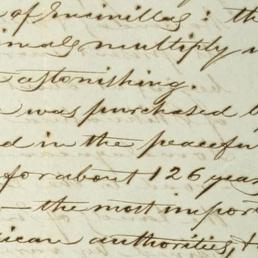 of Ansinellas: the
imals multiply
astonishing.
was purchased b
d in the peacefu
for about 126 yea
– the most impor
ican authorities,